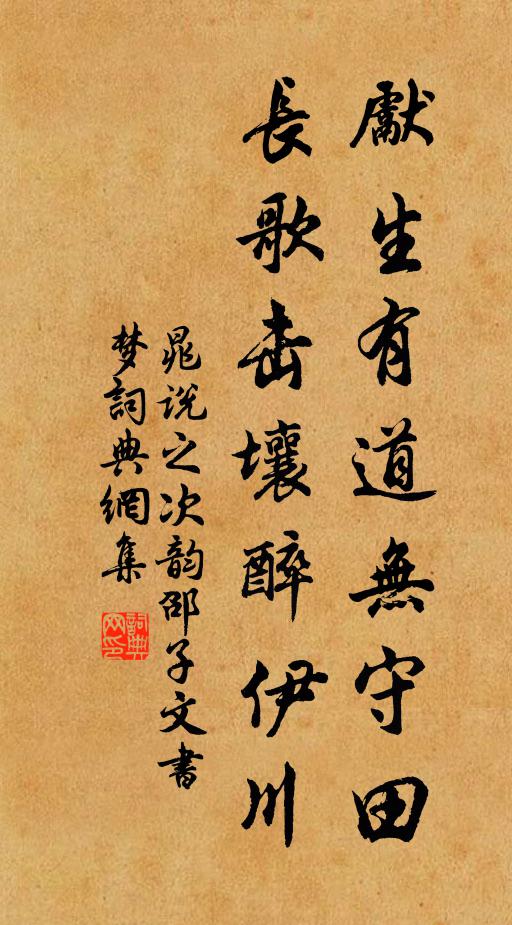 獻生有道無守田
長歌击壤醉伊川
晁说之次韵邵子文書
梦詞典網集
詞典网印